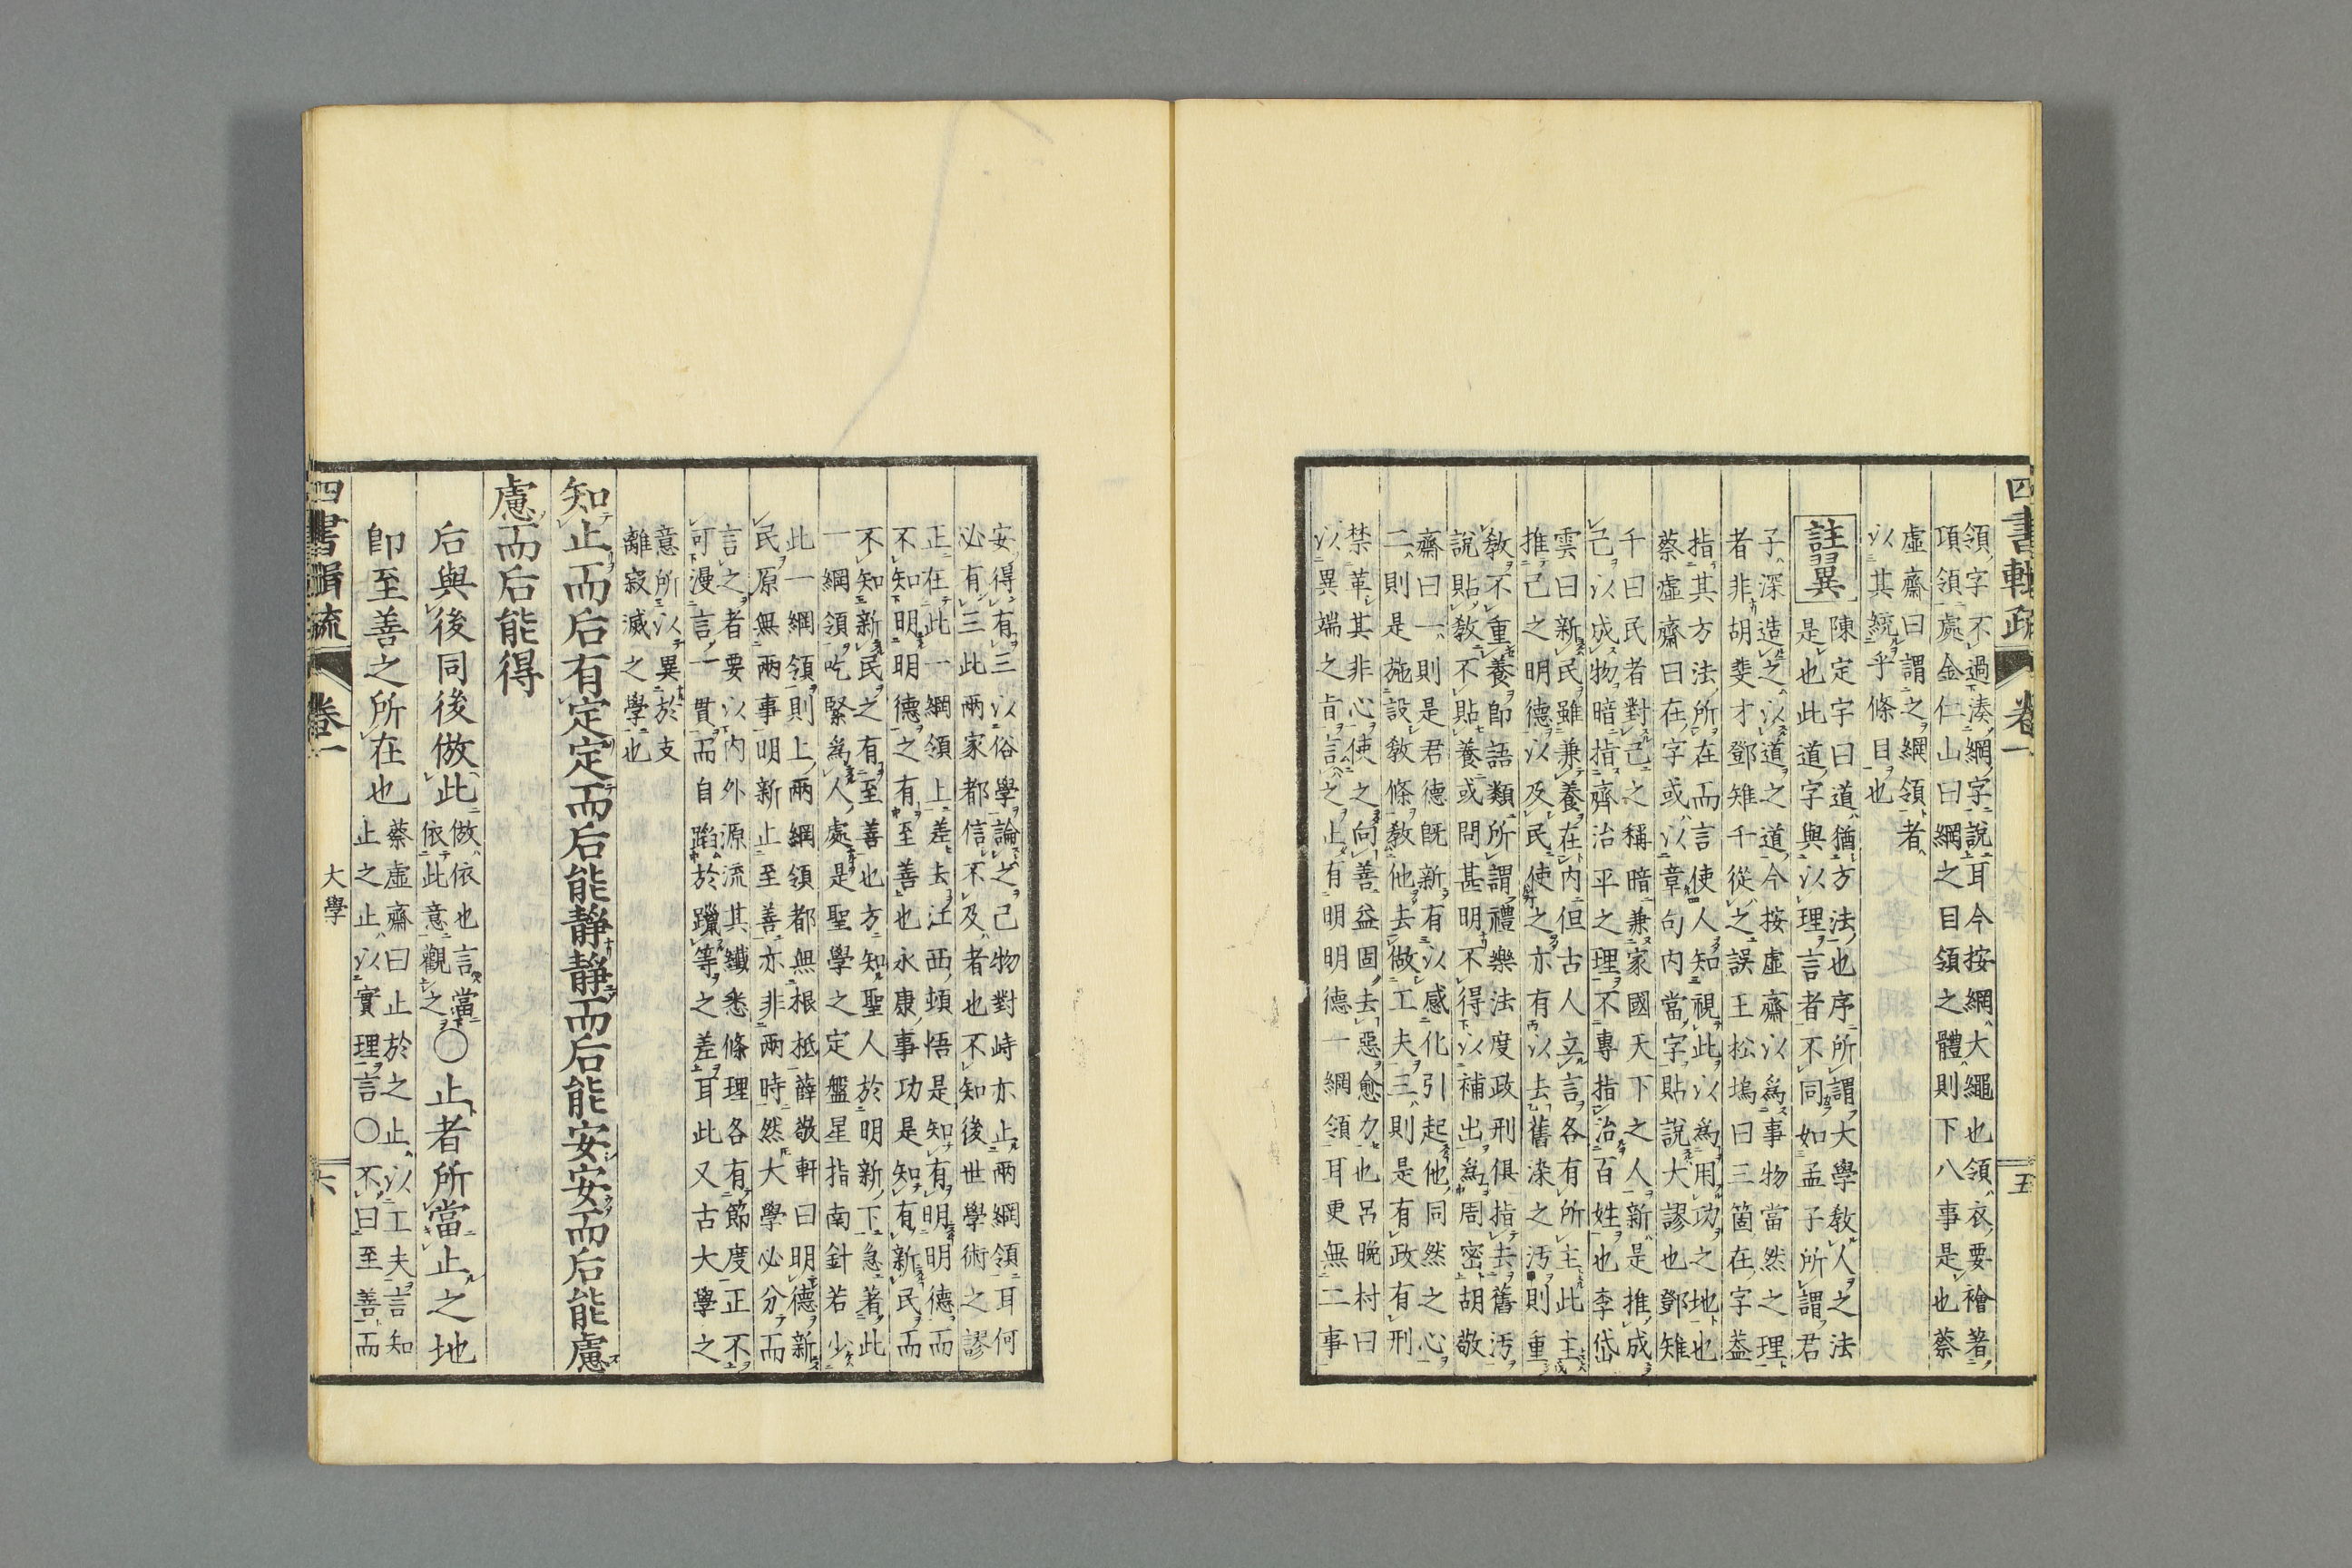 四書輯疏 卷一 五
領字不過湊網字說耳今按網大繩也領衣要襘著
項領處金仁山曰網之目領之體則下八事是也蔡
虛齋曰謂之網領者
以其統乎條目也
註翼
陳定宇曰道猶方法也序所謂大學敎人之法
是也此道字與以理言者不同如孟子所謂君
子深造之以道之道今按虛齋以爲事物當然之理
者非胡斐才鄧雉千從之誤王松塢曰三箇在字葢
指其方法所在而言使人知視此以爲用功之地也
蔡虛齋曰在字或以章句內當字貼說大謬也鄧雉
千曰民者對己之稱暗兼家國天下之人新是推成
己以成物暗指齊治平之理不專指治百姓也李岱
雲曰新民雖兼養在內但古人立言各有所主此主
推己之明德以及民使之亦有以去舊染之汚則重
敎不重養卽語類所謂禮樂法度政刑俱指去舊汚
說貼敎不貼養或問甚明不得以補出爲周密胡敬
齋曰一則是君德旣新有以感化引起他同然之心
二則是施設敎條敎他去做工夫三則是有政有刑
禁革其非心使之向善益固去惡愈力也呂晚村曰
以異端之旨言之止有明明德一網領耳更無二事
安得有三以俗學論之己物對峙亦止兩網領耳何
必有三此兩家都信不及者也不知後世學術之謬
正在此一網領上差去江西頓悟是知有明明德而
不知明明德之有至善也永康事功是知有新民而
不知新民之有至善也方知聖人於明新下急著此
一網領吃緊爲人處是聖學之定盤星指南針若少
此一網領則上兩網領都無根柢薛敬軒曰明德新
民原無兩事明新止至善亦非兩時然大學必分而
言之者要以內外源流其纖悉條理各有節度正不
可漫言一貫而自蹈於躐等之差耳此又古大學之
意所以異於支
離寂滅之學也
知止而后有定定而后能靜靜而后能安安而后能慮
慮而后能得
后與後同後倣此
倣依也言當
依此意觀之
〇止者所當止之地
卽至善之所在也
蔡虛齋曰止於之止以工夫言知
止之止以實理言〇不曰至善而
四書輯疏 卷一 大學 六